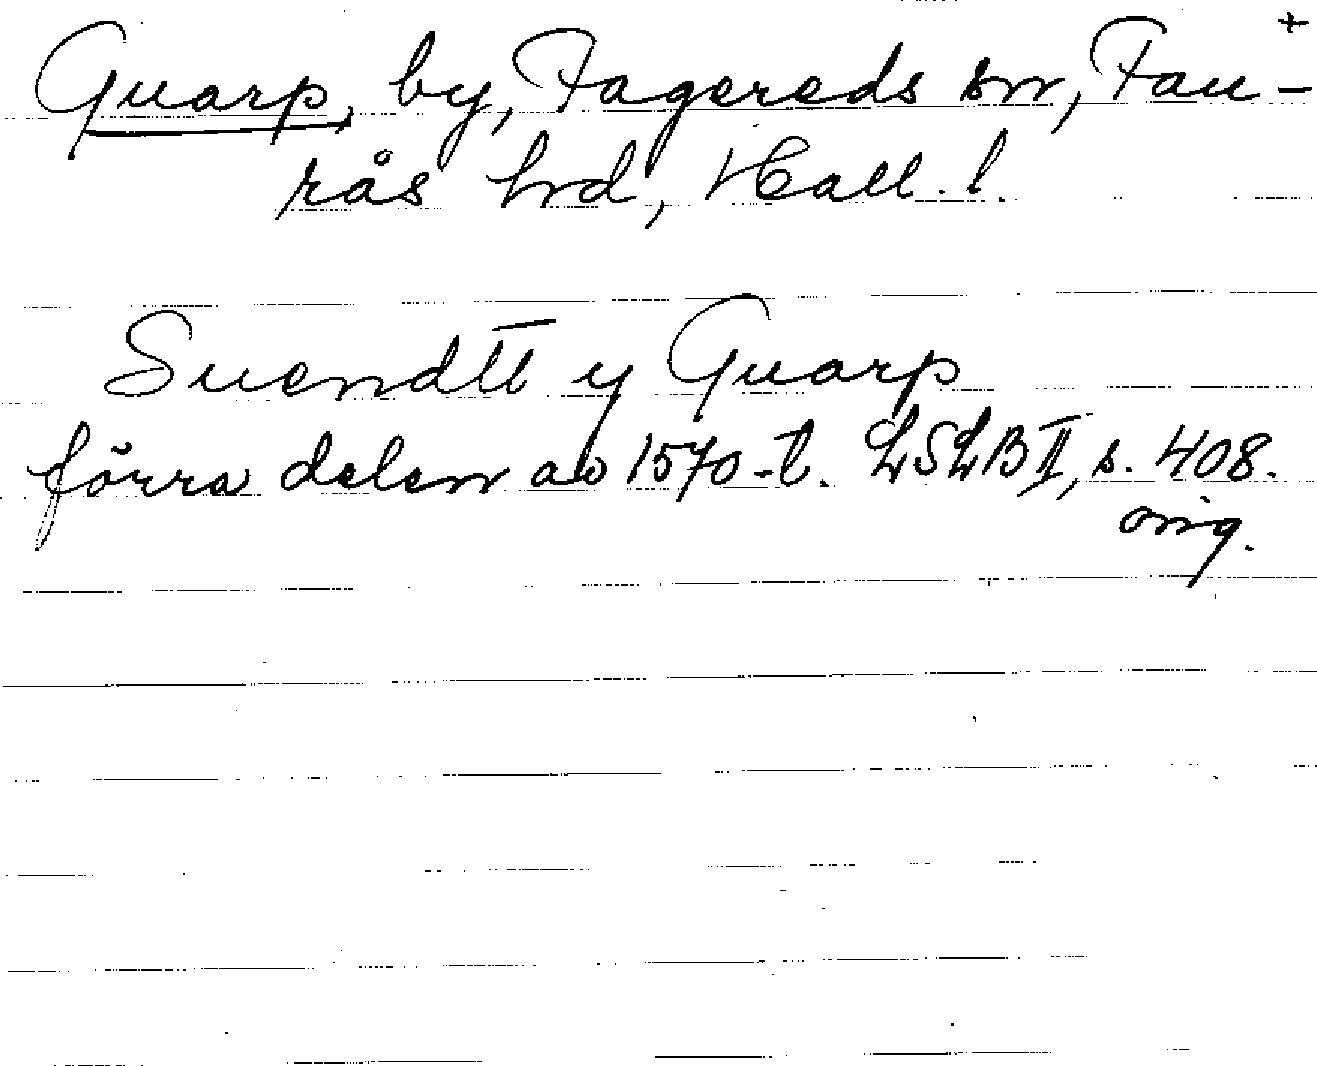 +
Guarp, by, Fagereds sn, Fau-
rås hd, Hall. l.
Suendtt y Guarp
förra delen av 1570-t. LSLB II, s. 408.
orig.